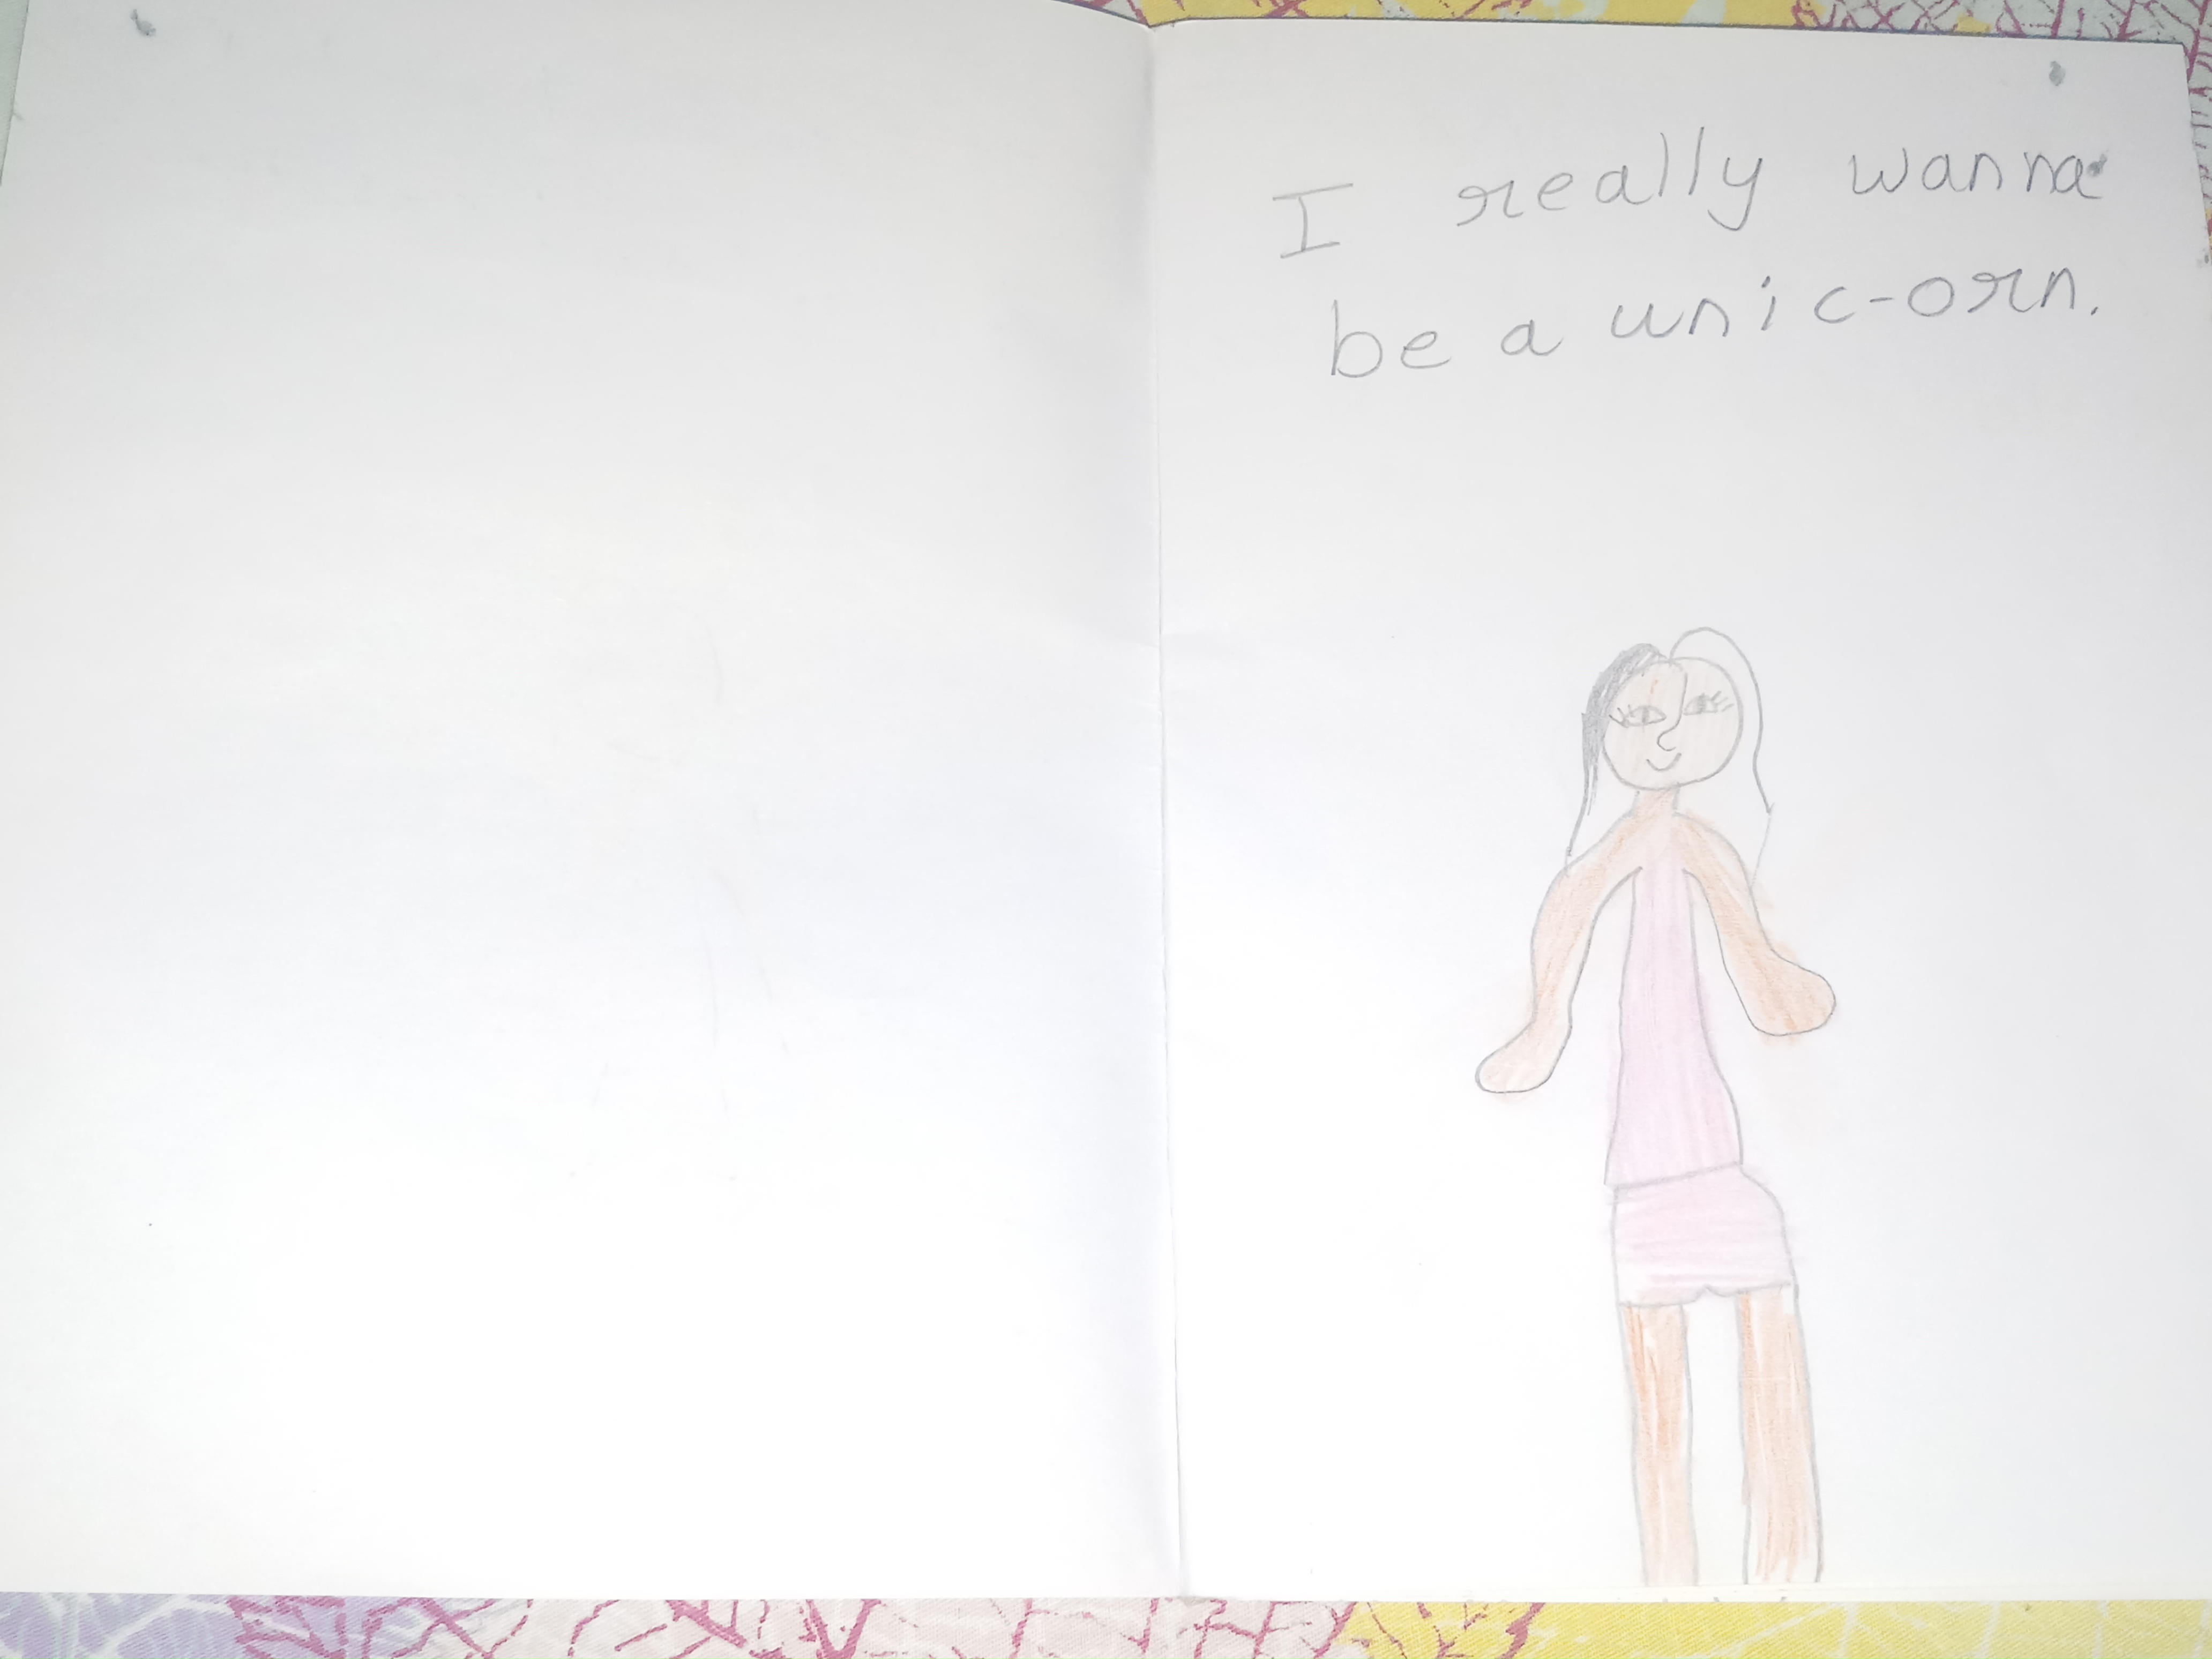 I really wanna
be a unic-orn.